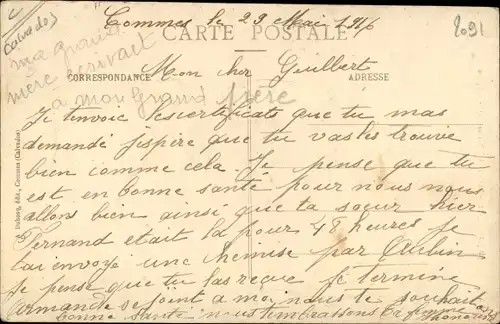 Commes le 29 Mai 1916
2091
(Calvados)
CARTE POSTALE
ma grand
mère écrivait
à mon grand père
CORRESPONDANCE
ADRESSE
Mon cher Guilbert
Je tenvoie les certificats que tu mas
demandé jispire que tu vas les trouvé
bien comme cela. Je pense que tu
est en bonne santé pour nous nous
allons bien ainsi que ta sœur hier
Fernand était là pour 48 heures je
tai envoyé une chemise par
je pense que tu las reçue je termine
Armandse se joint a moi nous te souhaitons
bonne santé nous tembrassons
Dubosq, édit., Commes (Calvados)